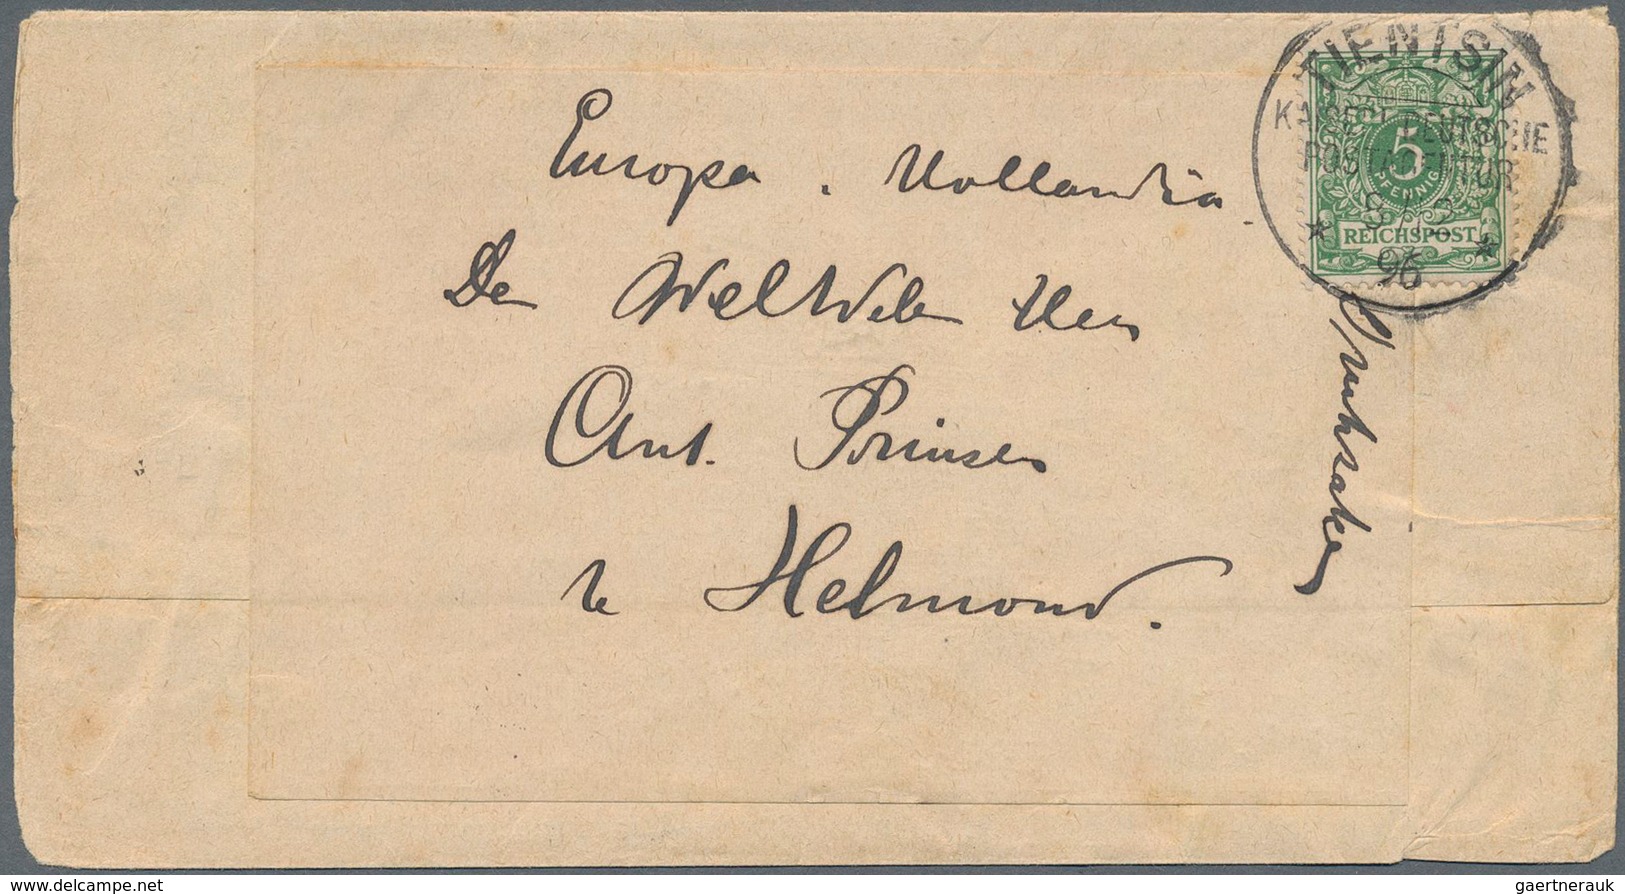 TIENTSIN
KAISERL. DEUTSCHE
POSTAGENTUR
8/3
96
5
PFENNIG
REICHSPOST
Europa. Hollandia.
Den WelEdelen Heer
Ant. Prinsen
te Helmond.
Drukzaken
© www.delcampe.net
gaertnerauk